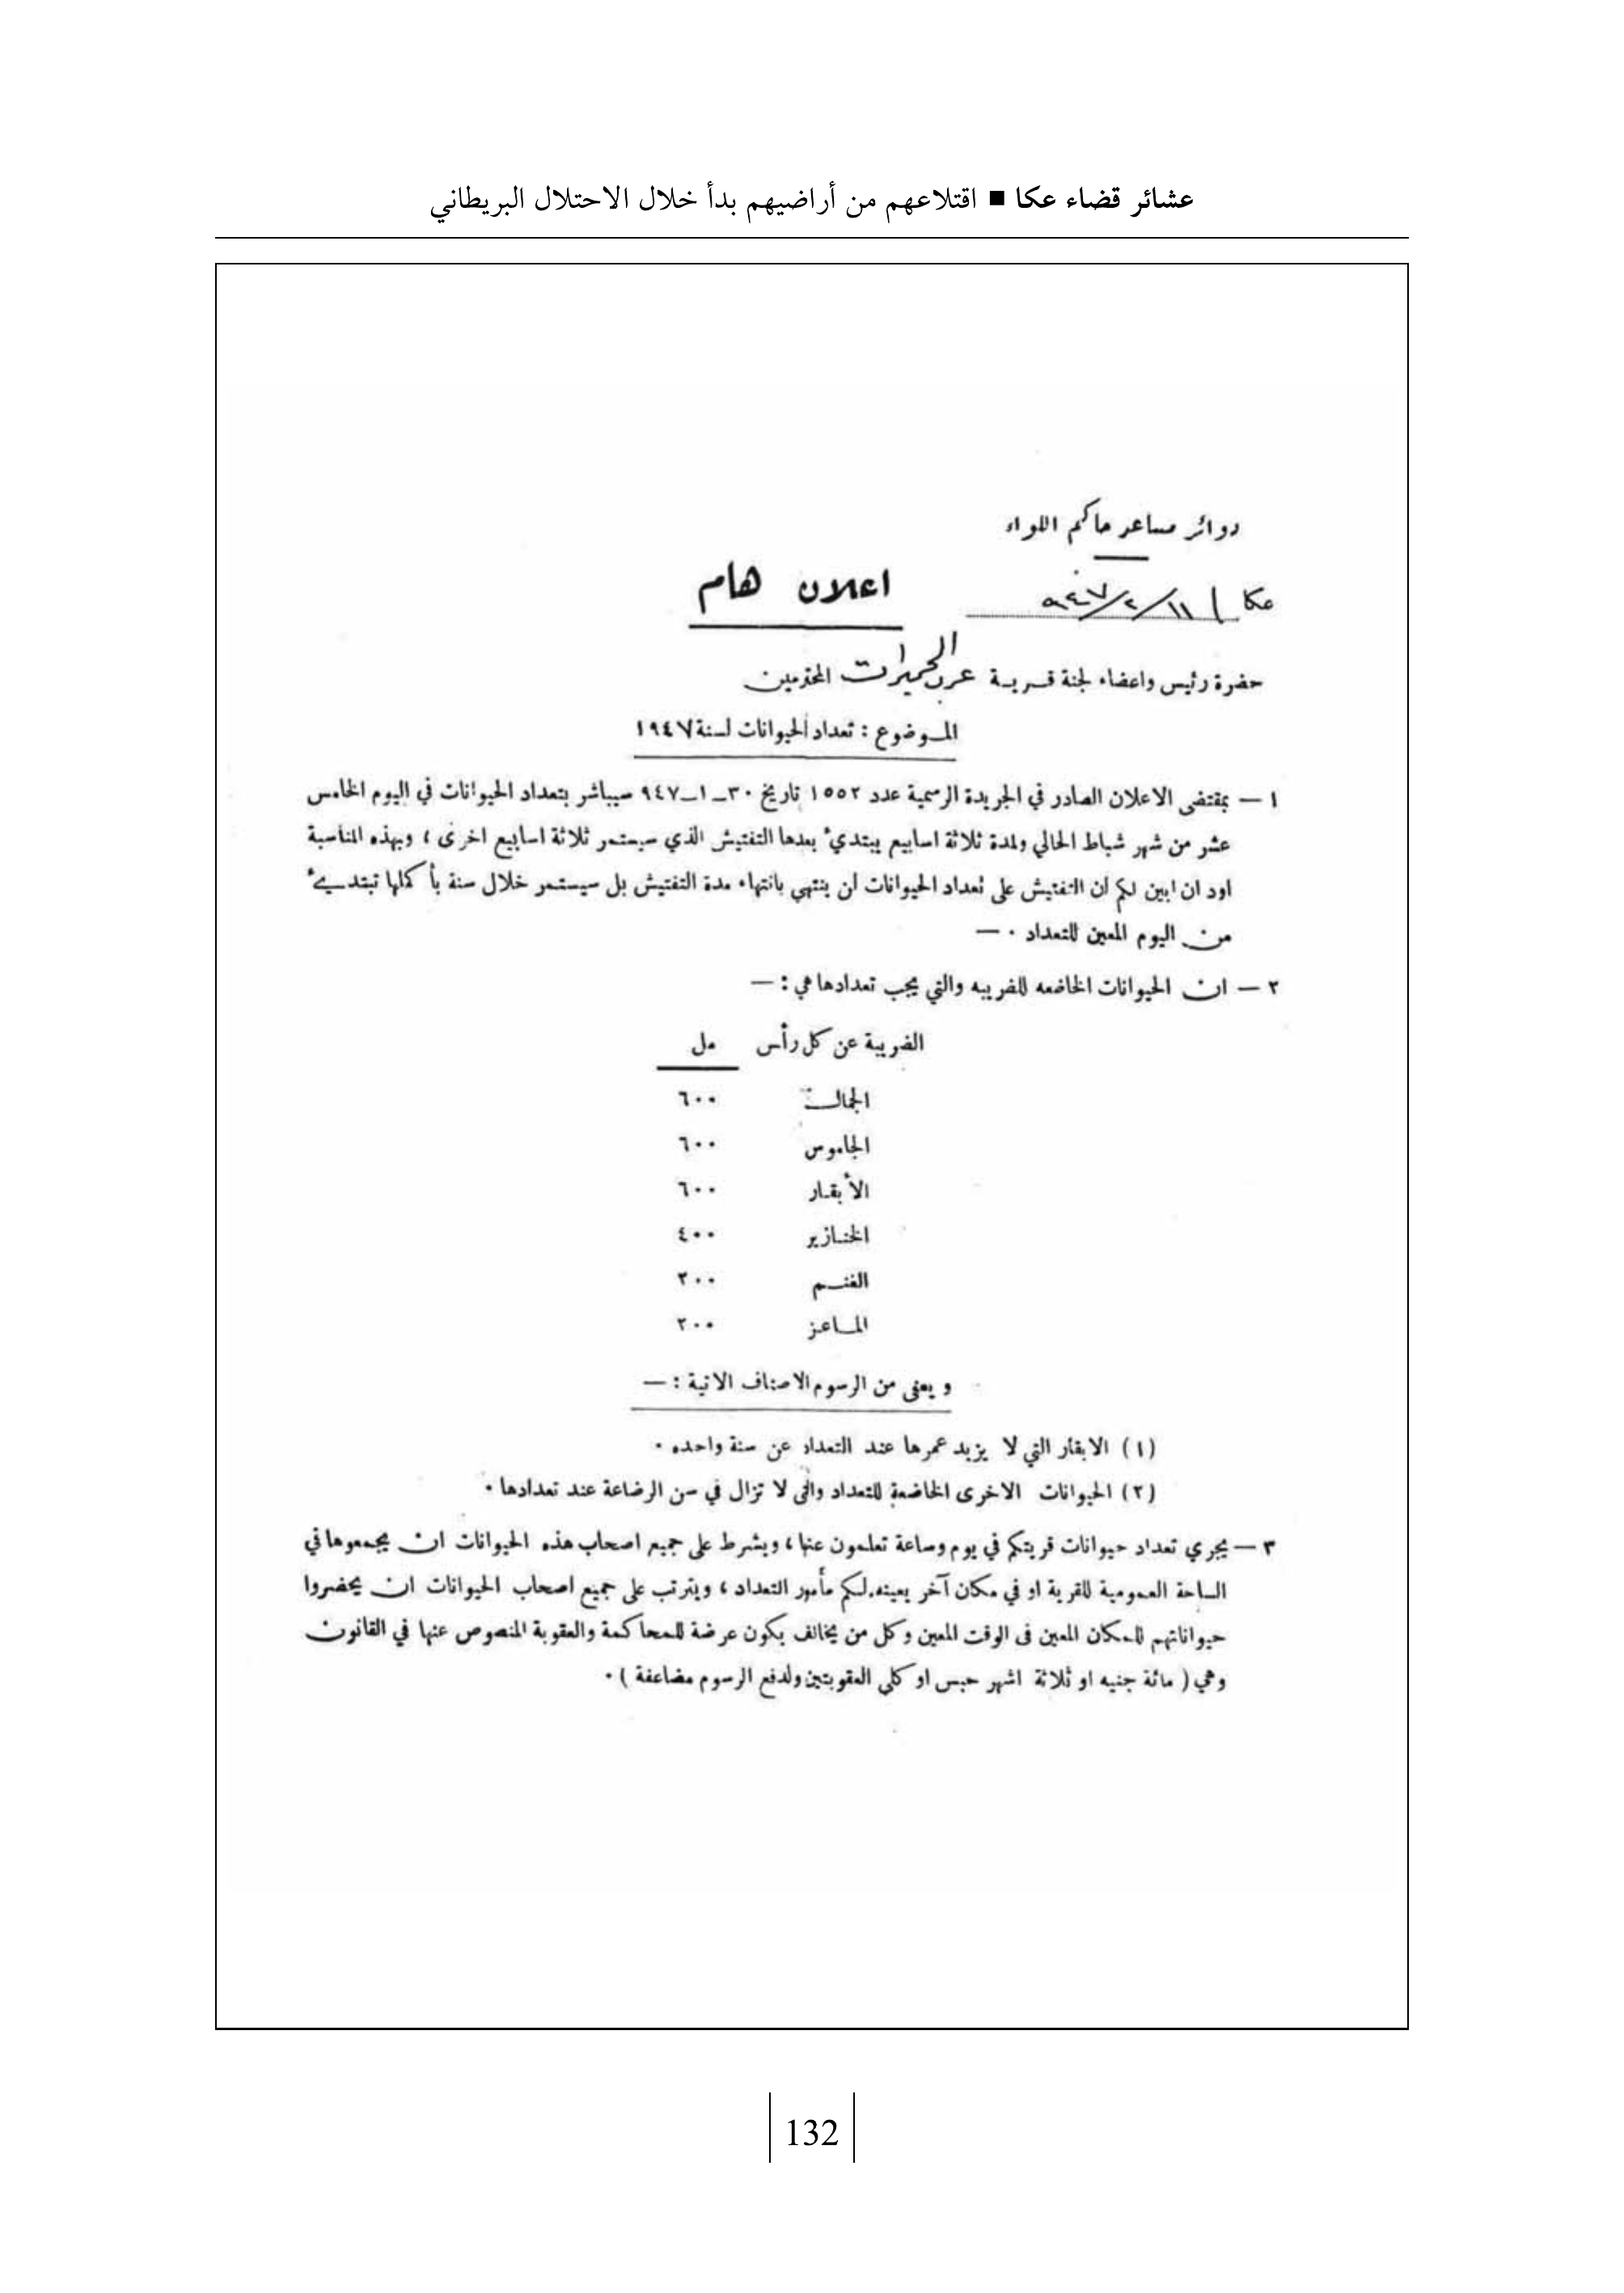 عشائر قضاء عكا ■ اقتلاعهم من أراضيهم بدأ خلال الاحتلال البريطاني
دوائر مساعد حاكم اللواء
عكا ١١/٢/٩٤٧
اعلان هام
حضرة رئيس واعضاء لجنة قرية عرب الحميرات المحترمين
الموضوع : تعداد الحيوانات لسنة ١٩٤٧
١ — بمقتضى الاعلان الصادر في الجريدة الرسمية عدد ١٥٥٢ تاريخ ٣٠-١-٩٤٧ سيباشر بتعداد الحيوانات في اليوم الخامس
عشر من شهر شباط الحالي ولمدة ثلاثة اسابيع يبتديء بعدها التفتيش الذي سيستمر ثلاثة اسابيع اخرى ، وبهذه المناسبة
اود ان ابين لكم ان التفتيش على تعداد الحيوانات لن ينتهي بانتهاء مدة التفتيش بل سيستمر خلال سنة بأكملها تبتديء
من اليوم المعين للتعداد ٠ —
٢ — ان الحيوانات الخاضعه للضريبه والتي يجب تعدادها هي : —
الضريبة عن كل رأس مل
الجمال ٦٠٠
الجاموس ٦٠٠
الأبقار ٦٠٠
الخنازير ٤٠٠
الغنم ٢٠٠
الماعز ٢٠٠
و يعفى من الرسوم الاصناف الاتية : —
(١) الابقار التي لا يزيد عمرها عند التعداد عن سنة واحده ٠
(٢) الحيوانات الاخرى الخاضعة للتعداد والتي لا تزال في سن الرضاعة عند تعدادها ٠
٣ — يجري تعداد حيوانات قريتكم في يوم وساعة تعلمون عنها ، ويشرط على جميع اصحاب هذه الحيوانات ان يجمعوها في
الساحة العمومية للقرية او في مكان آخر يعينه لكم مأمور التعداد ، ويترتب على جميع اصحاب الحيوانات ان يحضروا
حيواناتهم للمكان المعين في الوقت المعين وكل من يخالف يكون عرضة للمحاكمة والعقوبة المنصوص عنها في القانون
وهي ( مائة جنيه او ثلاثة اشهر حبس او كلي العقوبتين ولدفع الرسوم مضاعفة ) ٠
132